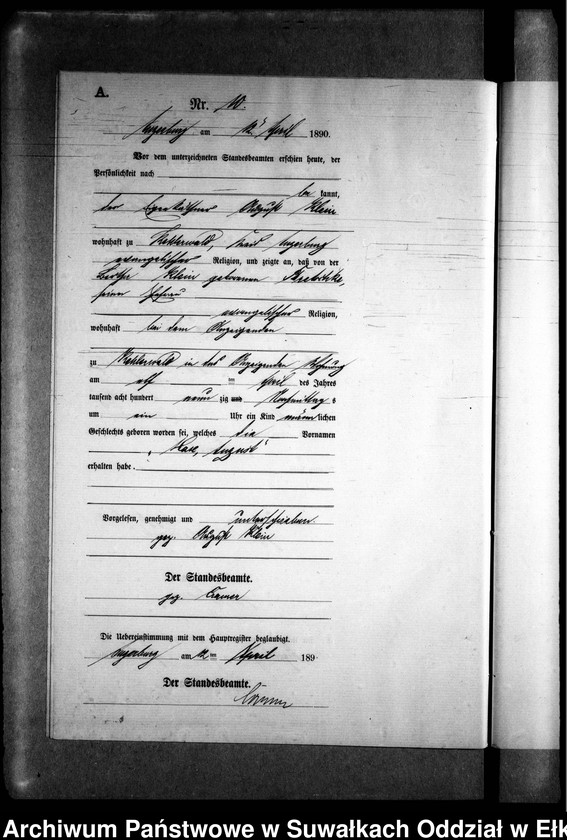 A.
Nr. 10.
Angerburg am 12. April 1890.
Vor dem unterzeichneten Standesbeamten erschien heute, der
Persönlichkeit nach
be kannt,
der Eigenkäthner August Klein
wohnhaft zu Kehlerwald, Kreis Angerburg
evangelischer Religion, und zeigte an, daß von der
Bertha Klein geborenen
seiner Ehefrau
evangelischer Religion,
wohnhaft bei dem Anzeigenden
zu Kehlerwald in des Anzeigenden Wohnung
am elf ten April des Jahres
tausend acht hundert neun zig und Nachmittags
um ein Uhr ein Kind männ lichen
Geschlechts geboren worden sei, welches die Vornamen
„Karl, August“
erhalten habe.
Vorgelesen, genehmigt und unterschrieben
gez. August Klein
Der Standesbeamte.
gez. Cramer
Die Uebereinstimmung mit dem Hauptregister beglaubigt.
Angerburg am 12 ten April 189
Der Standesbeamte.
Cramer
Archiwum Państwowe w Suwałkach Oddział w Ełk